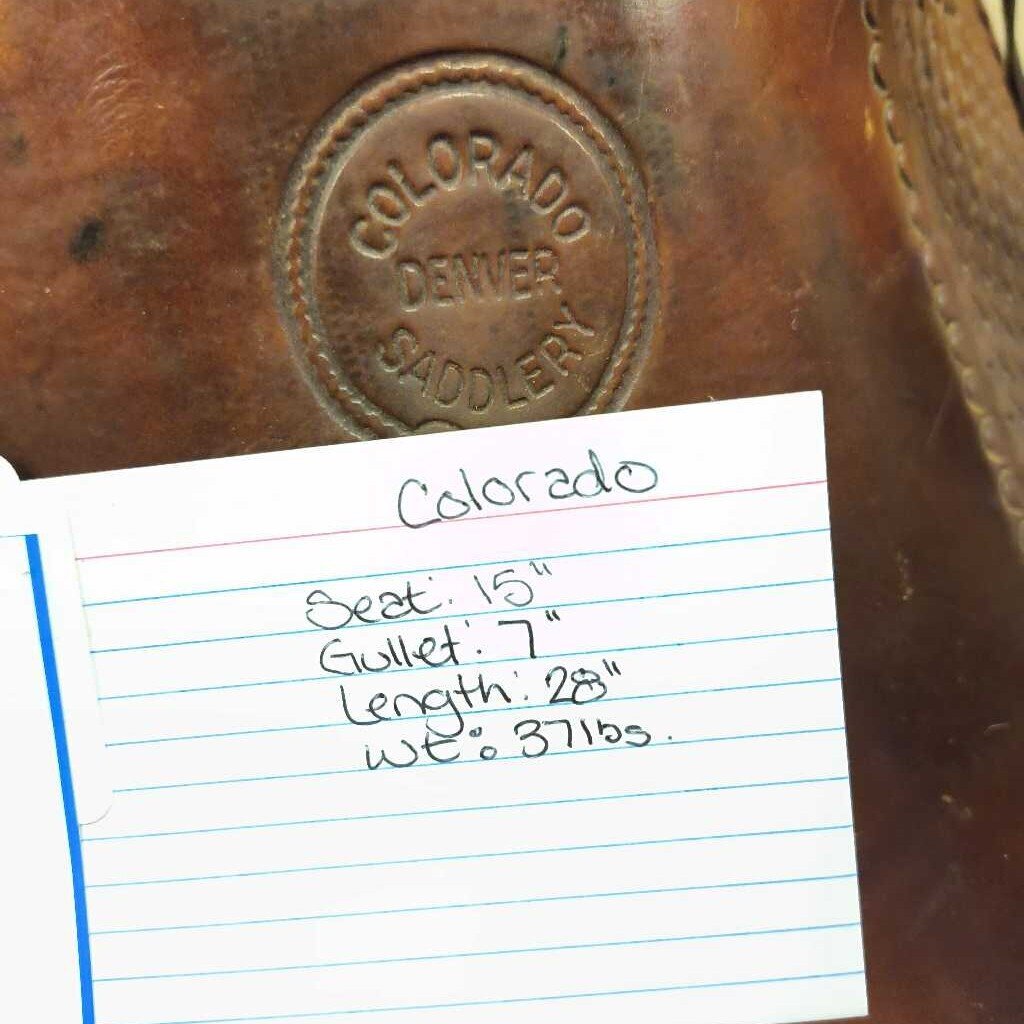 COLORADO
DENVER
SADDLERY
Colorado
Seat: 15"
Gullet: 7"
Length: 28"
Wt: 37lbs.